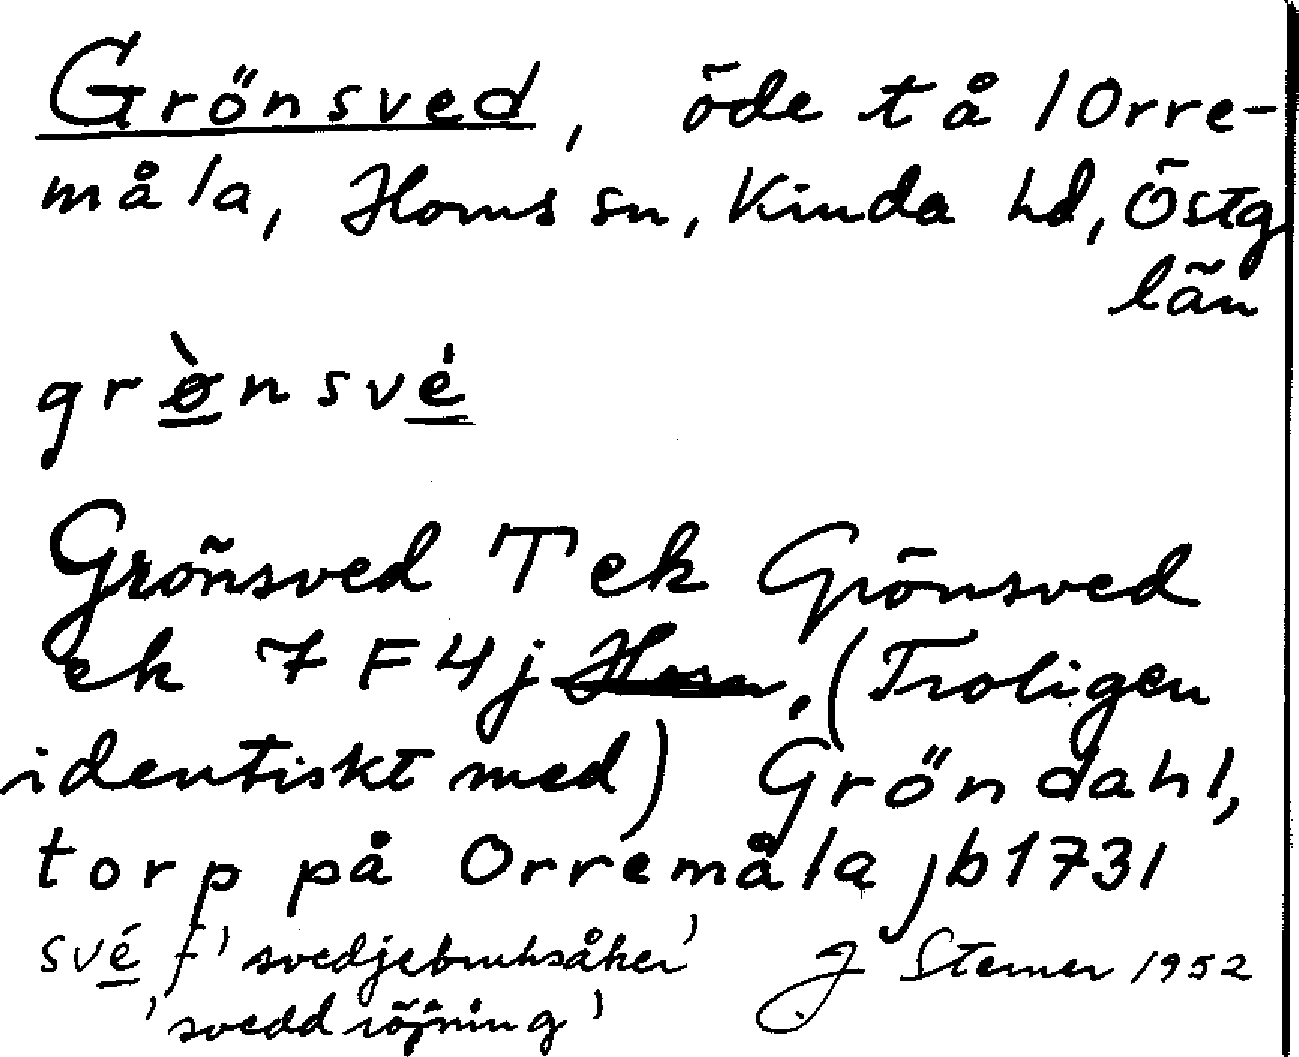 Grönsved, öde tå / Orre-
måla, Horns sn, Kinda hd, Östg
län
grø̀nsvé
Grönsved T ek Grönsved
ek 7 F 4 j. (Troligen
identiskt med) Gröndahl,
torp på Orremåla jb 1731
své f 'svedjebruksåker' J Sterner 1952
'svedd röjning'